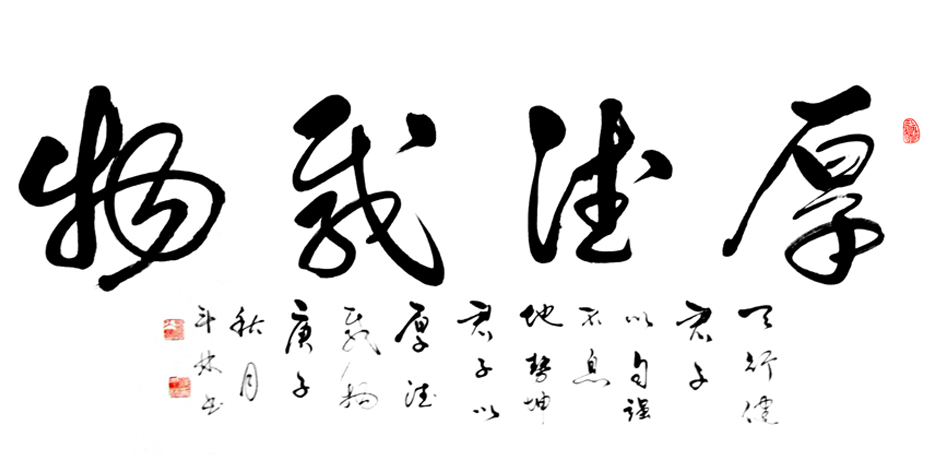 厚德载物
天行健
君子
以自强
不息
地势坤
君子以
厚德
载物
庚子
秋月
斗林书